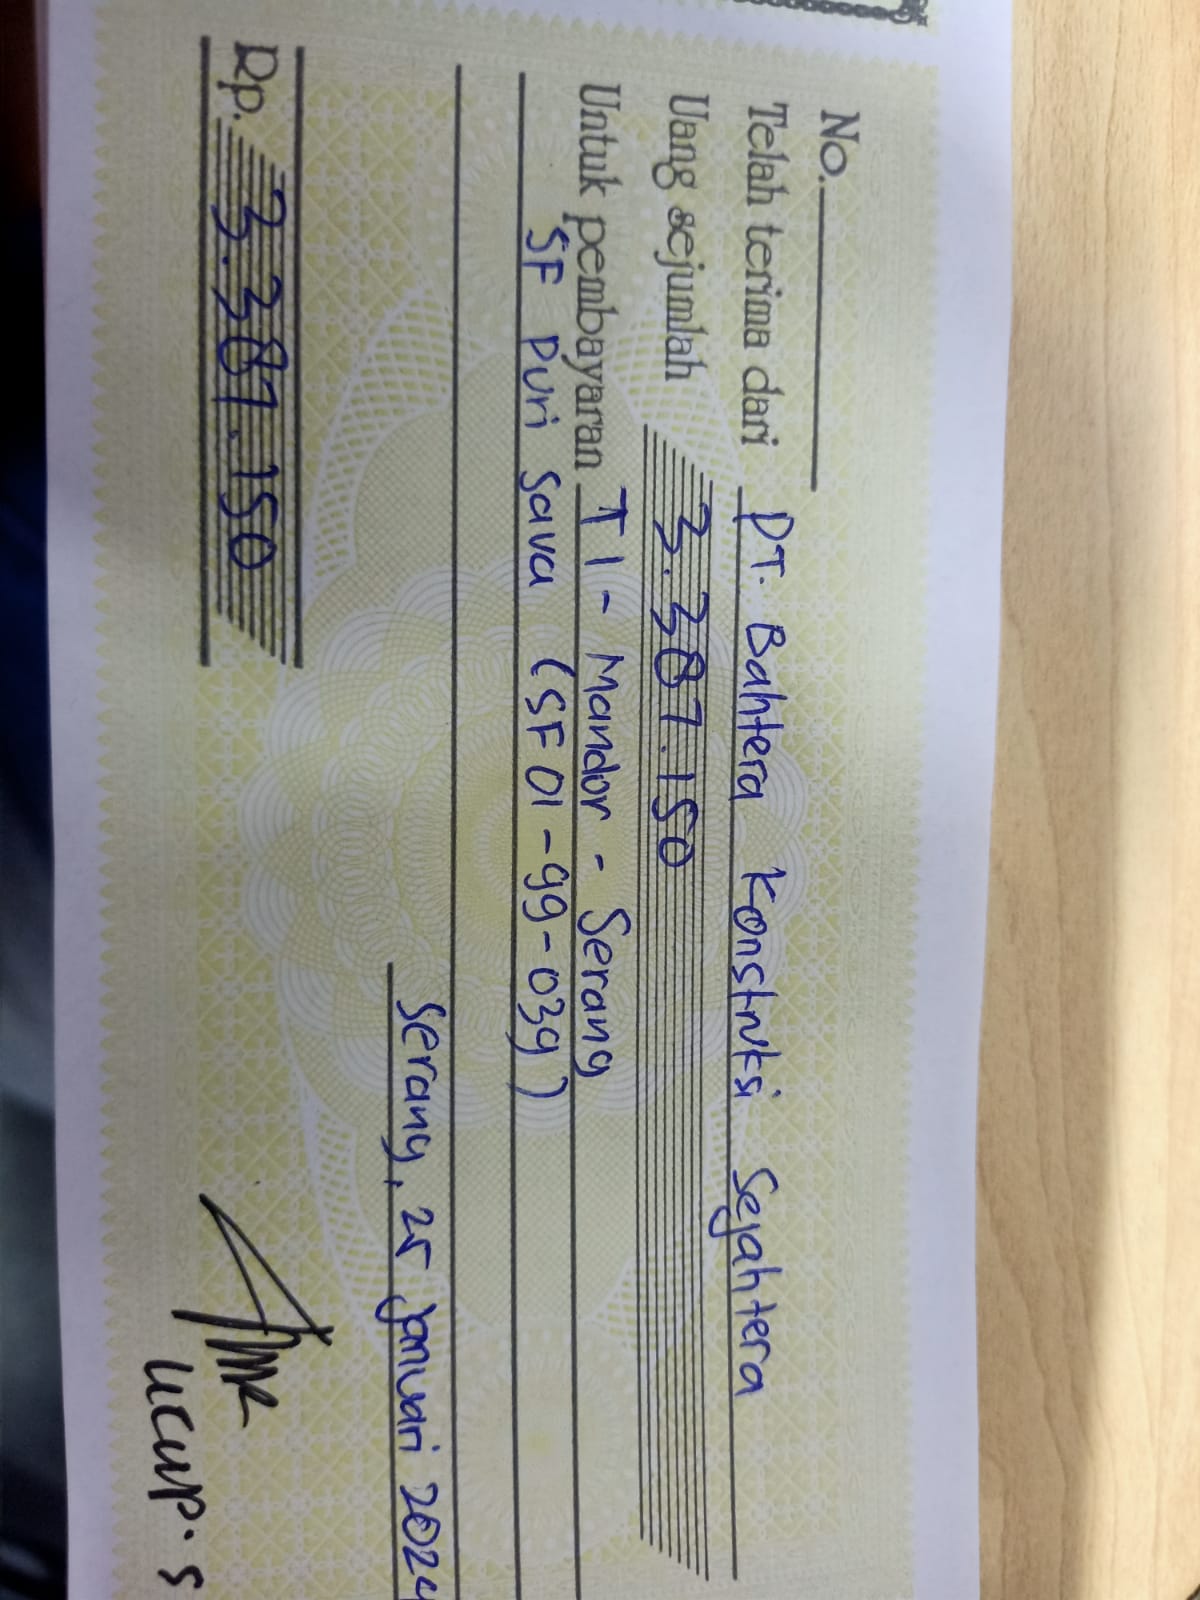 No.
Telah terima dari PT. Bahtera Konstruksi Sejahtera
Uang sejumlah 3.387.150
Untuk pembayaran T1 - Mandor - Serang
SF Puri Sava (SF01-99-039)
Serang, 25 Januari 2024
Rp. 3.387.150
UCUP.S